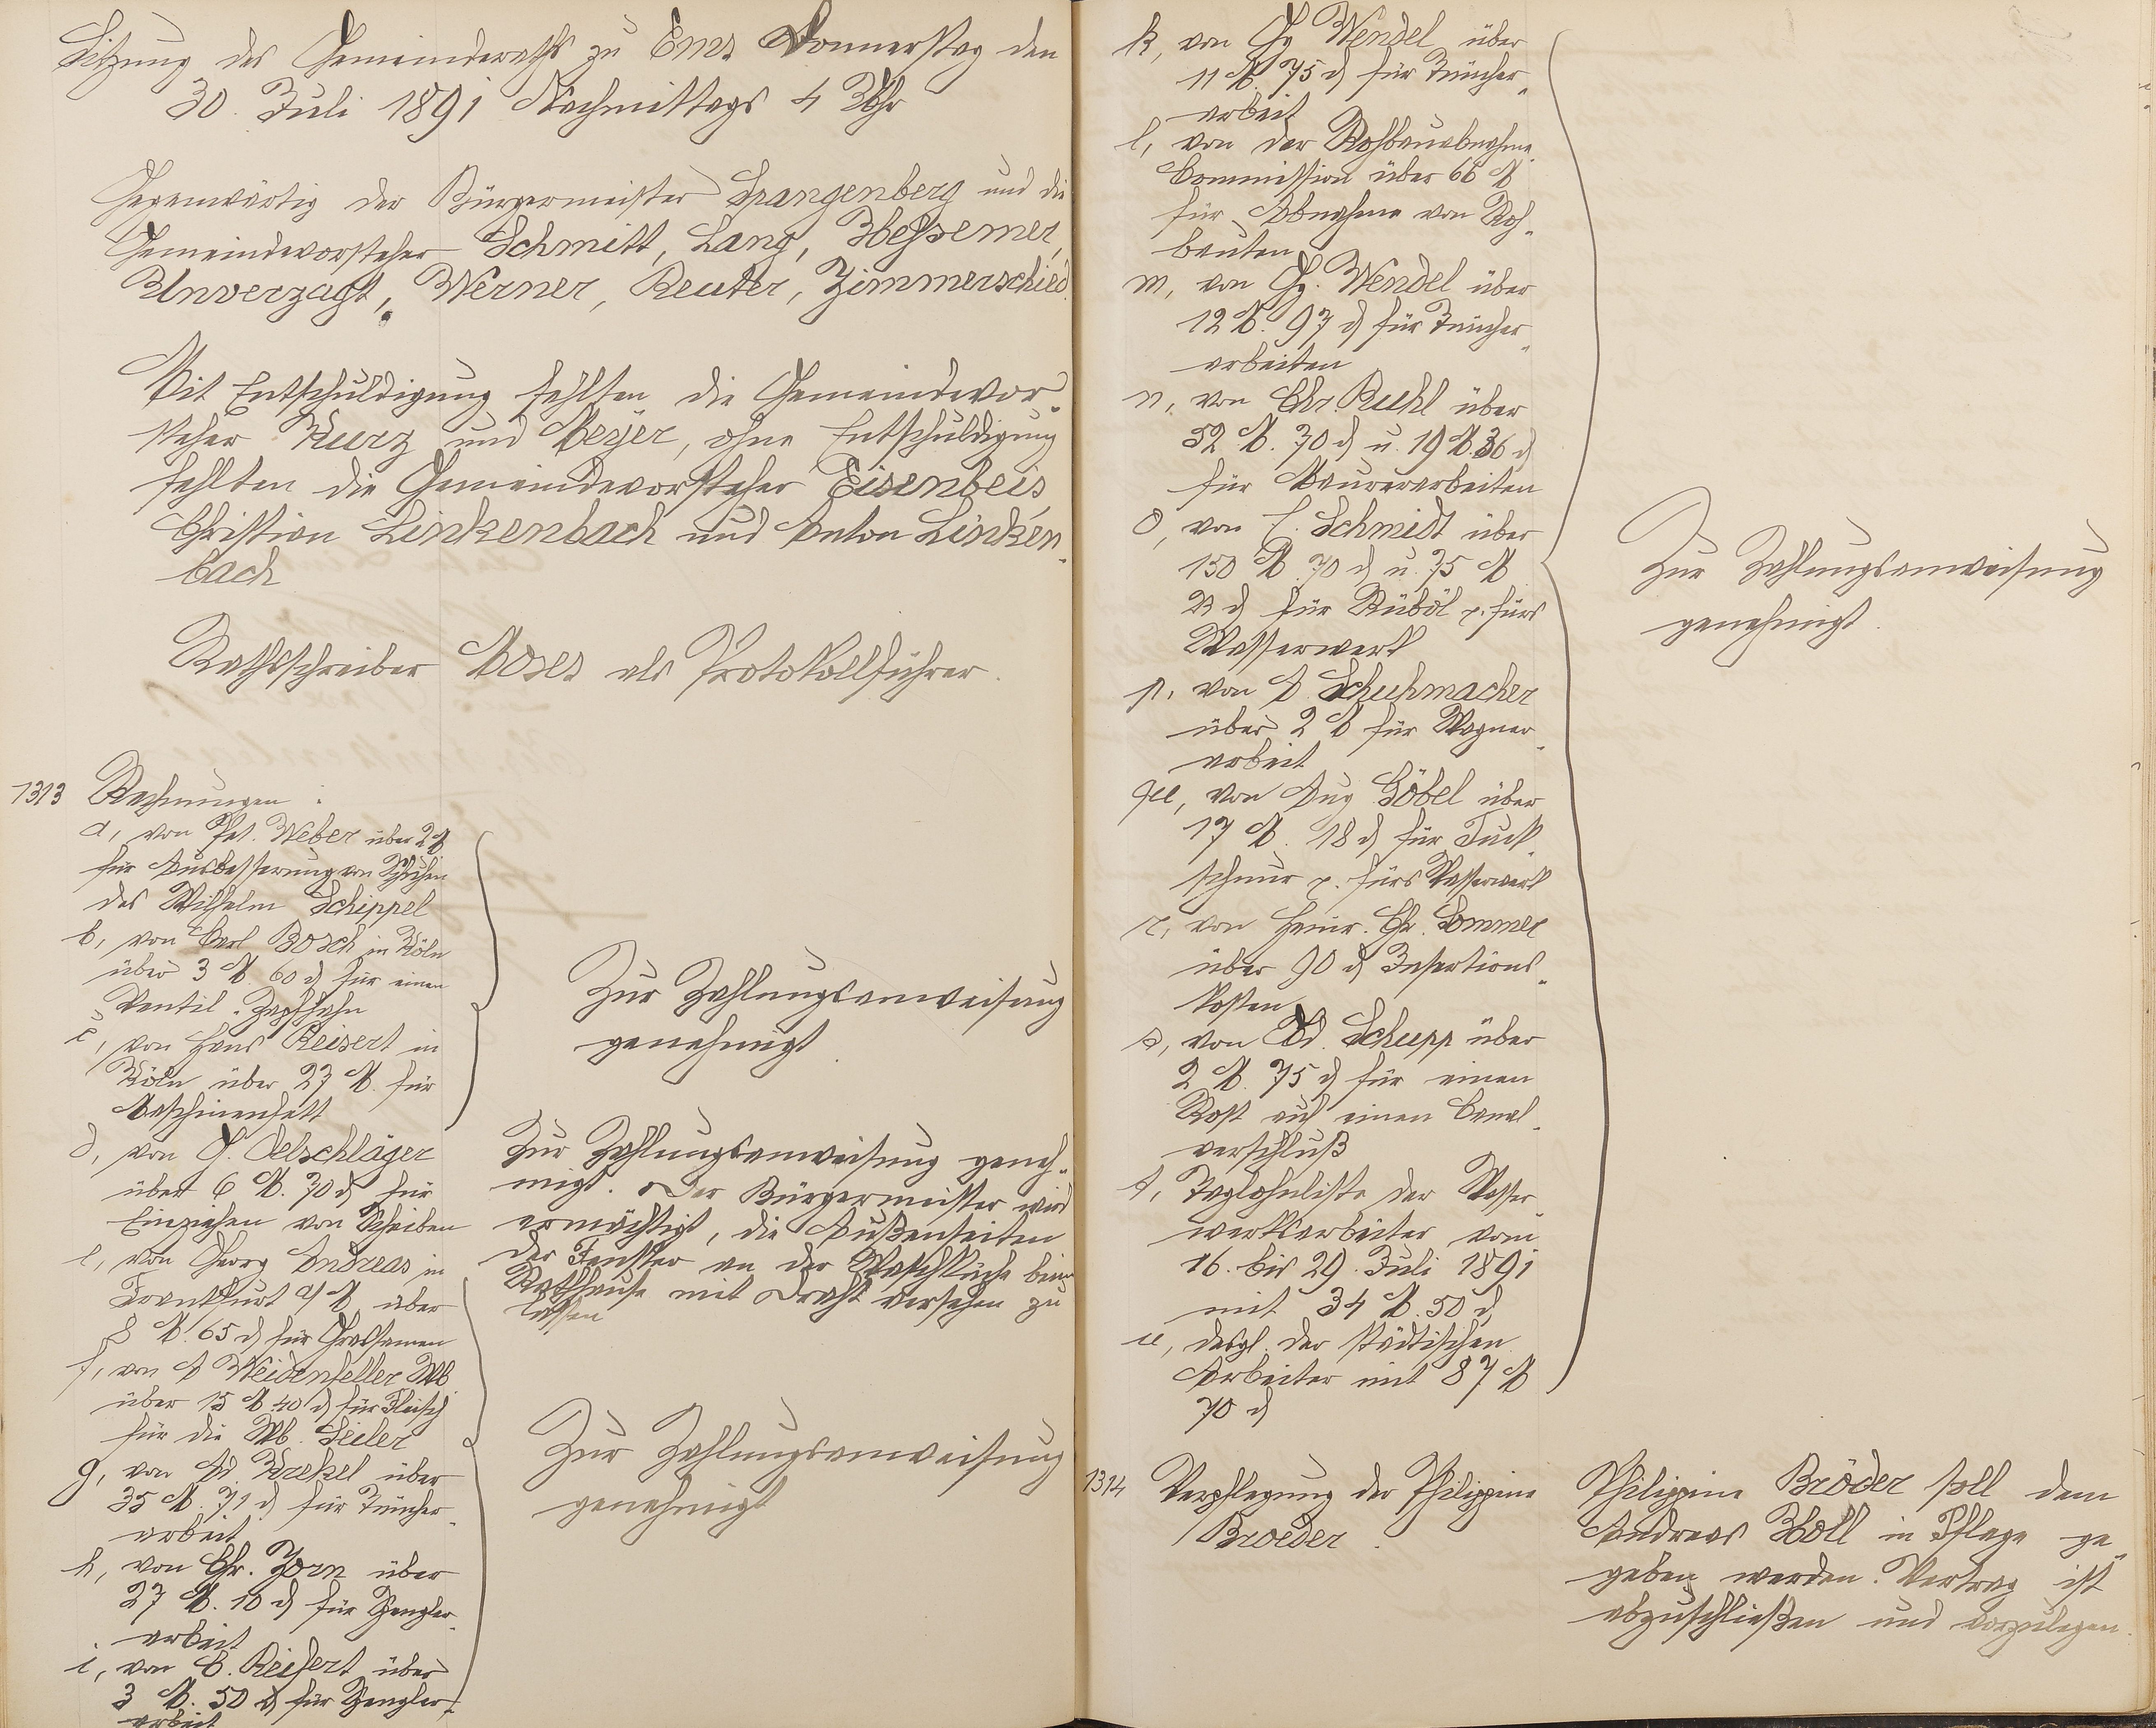 Sitzung des Gemeinderaths zu Ems Donnerstag den
30. Juli 1891 Nachmittags 4 Uhr
Gegenwärtig der Bürgermeister Spangenberg und die
Gemeindevorsteher Schmitt, Lang, Hessemer,
Unverzagt, Werner, Reuter, Zimmerschied.
Mit Entschuldigung fehlten die Gemeindevor-
steher Kurz und Meyer, ohne Entschuldigung
fehlten die Gemeindevorsteher Eisenbeis,
Christian Linkenbach und Anton Linken-
bach
Rathsschreiber Moses als Protokollführer.
1313 Rechnungen:
a, von Pet. Weber über 2 M
für Ausbesserung von Schuhen
des Wilhelm Schippel
b, von Carl Bosch in Köln
über 3 M. 60 d für einen
Ventil-Zapfhahn
c, von Hans Reisert in
Köln über 27 M. für
Maschinenfett
Zur Zahlungsanweisung
genehmigt.
d, von G. Oelschläger
über 6 M. 70 d für
Einziehen von Scheiben
Zur Zahlungsanweisung geneh-
migt. Der Bürgermeister wird
ermächtigt, die Außenseiten
der Fenster an der Waschküche beim
Rathhause mit Draht versehen zu
lassen
e, von Georg Andreas in
Frankfurt a/M über
8 M. 65 d für Grassamen
f, von A Weidenfeller Wb
über 15 M 40 d für Fleisch
für die Wb. Seiler
g, von Ad. Krekel über
35 M. 71 d für Tüncher-
arbeit
h, von Chr. Zorn über
27 M. 10 d für Spengler-
arbeit
i, von C. Reifert über
3 M. 50 d für Spengler-
arbeit
Zur Zahlungsanweisung
genehmigt
k, von Gg Wendel über
11 M. 75 d für Tüncher-
arbeit
l, von der Rohbauabnahme-
Commission über 66 M
für Abnahme von Roh-
bauten
m, von Gg. Wendel über
12 M. 97 d für Tüncher-
arbeiten
n, von Chr. Ruhl über
52 M. 70 d u. 19 M. 36 d
für Maurerarbeiten
o, von E. Schmidt über
150 M 70 d u. 75 M
23 d für Rüböl p. fürs
Wasserwerk
p, von A Schuhmacher
über 2 M für Wagner-
arbeit
qu, von Aug Göbel über
17 M. 18 d für
schnur p. fürs Wasserwerk
r, von Heinr. Chr. Sommer
über 90 d Insertions-
kosten
s, von Ad. Schupp über
2 M. 75 d für einen
Rost auf einen Canal-
verschluß
t, Taglohnliste der Wasser-
werksarbeiter vom
16. bis 29. Juli 1891
mit 34 M. 50 d,
u, desgl. der städtischen
Arbeiter mit 87 M
70 d
Zur Zahlungsanweisung
genehmigt.
1314 Verpflegung der Philippine
Broeder.
Philippine Bröder soll dem
Andreas Holl in Pflege ge-
geben werden. Vertrag ist
abzuschließen und vorzulegen.